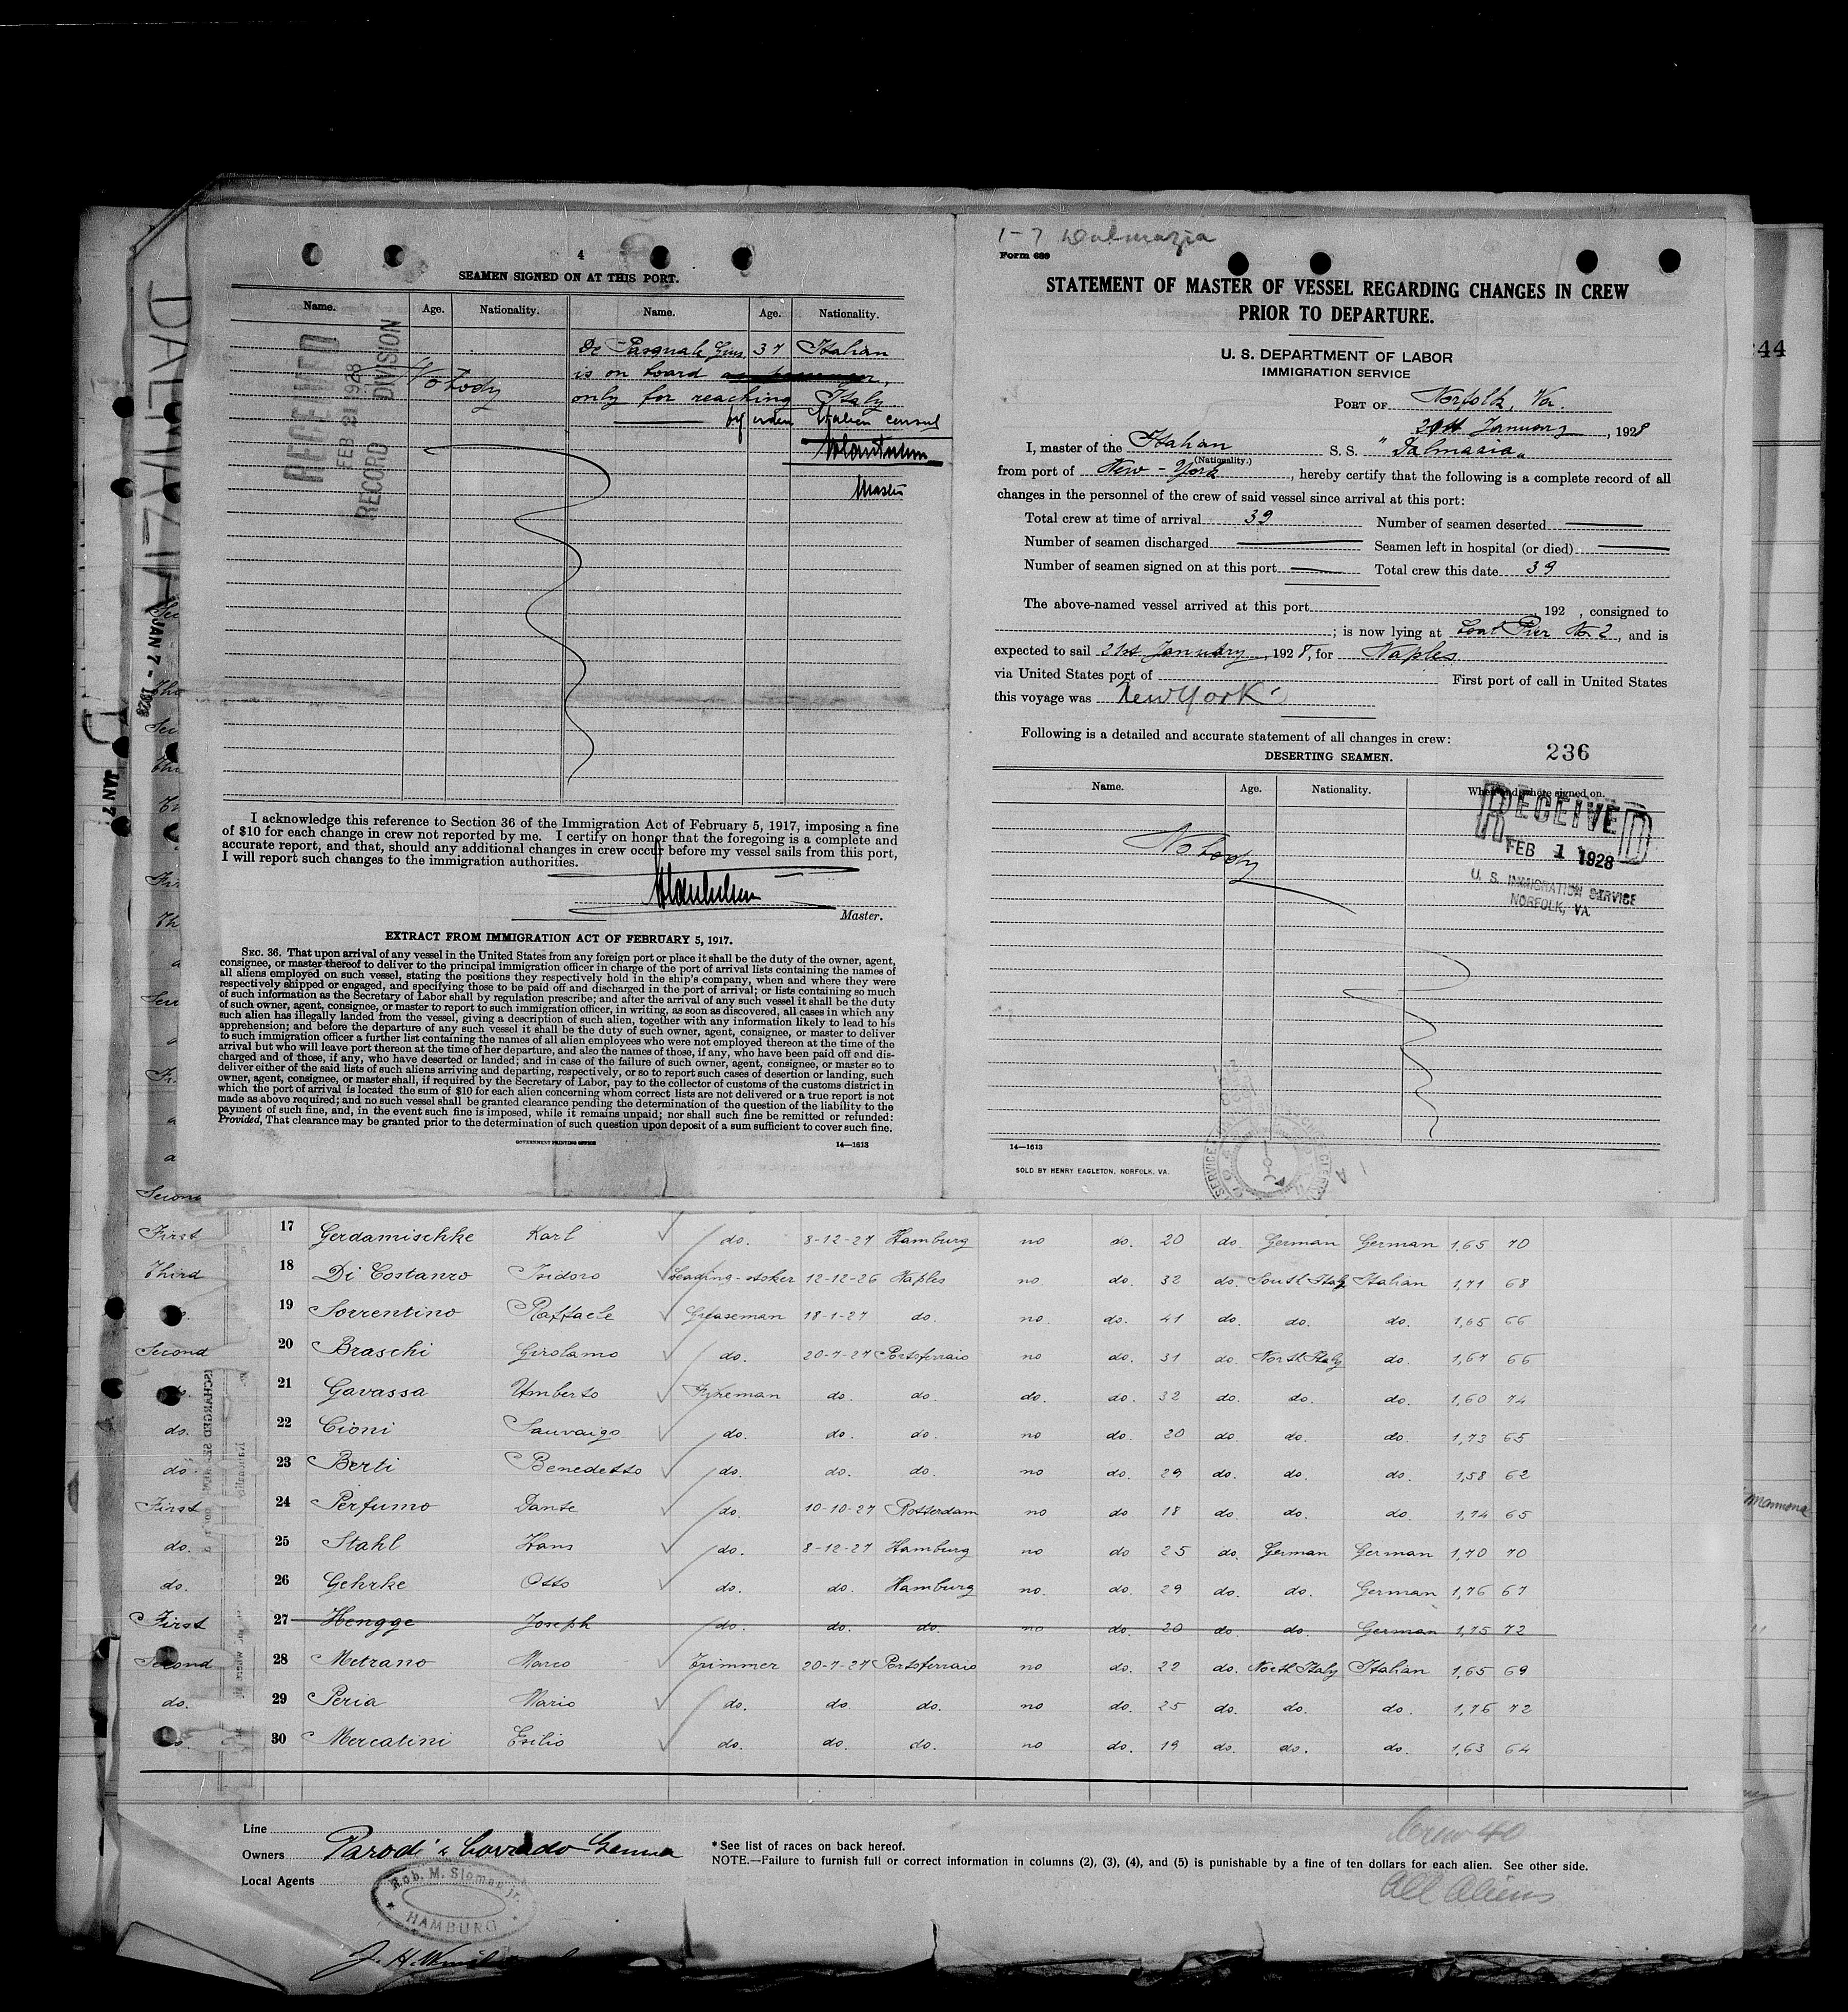 4
SEAMEN SIGNED ON AT THIS PORT.
Name. Age. Nationality. Name. Age. Nationality.
De Pasquale Gius. 37 Italian
Nobody
is on board as passenger,
only for reaching Italy
by order Italian consul
Master
RECEIVED
FEB 21 1928
RECORD DIVISION
I acknowledge this reference to Section 36 of the Immigration Act of February 5, 1917, imposing a fine
of $10 for each change in crew not reported by me. I certify on honor that the foregoing is a complete and
accurate report, and that, should any additional changes in crew occur before my vessel sails from this port,
I will report such changes to the immigration authorities.
Master.
EXTRACT FROM IMMIGRATION ACT OF FEBRUARY 5, 1917.
SEC. 36. That upon arrival of any vessel in the United States from any foreign port or place it shall be the duty of the owner, agent,
consignee, or master thereof to deliver to the principal immigration officer in charge of the port of arrival lists containing the names of
all aliens employed on such vessel, stating the positions they respectively hold in the ship's company, when and where they were
respectively shipped or engaged, and specifying those to be paid off and discharged in the port of arrival; or lists containing so much
of such information as the Secretary of Labor shall by regulation prescribe; and after the arrival of any such vessel it shall be the duty
of such owner, agent, consignee, or master to report to such immigration officer, in writing, as soon as discovered, all cases in which any
such alien has illegally landed from the vessel, giving a description of such alien, together with any information likely to lead to his
apprehension; and before the departure of any such vessel it shall be the duty of such owner, agent, consignee, or master to deliver
to such immigration officer a further list containing the names of all alien employees who were not employed thereon at the time of the
arrival but who will leave port thereon at the time of her departure, and also the names of those, if any, who have been paid off and dis-
charged and of those, if any, who have deserted or landed; and in case of the failure of such owner, agent, consignee, or master so to
deliver either of the said lists of such aliens arriving and departing, respectively, or so to report such cases of desertion or landing, such
owner, agent, consignee, or master shall, if required by the Secretary of Labor, pay to the collector of customs of the customs district in
which the port of arrival is located the sum of $10 for each alien concerning whom correct lists are not delivered or a true report is not
made as above required; and no such vessel shall be granted clearance pending the determination of the question of the liability to the
payment of such fine, and, in the event such fine is imposed, while it remains unpaid; nor shall such fine be remitted or refunded:
Provided, That clearance may be granted prior to the determination of such question upon deposit of a sum sufficient to cover such fine.
GOVERNMENT PRINTING OFFICE 14—1613
1-7 Dalmazia
Form 689
STATEMENT OF MASTER OF VESSEL REGARDING CHANGES IN CREW
PRIOR TO DEPARTURE.
U. S. DEPARTMENT OF LABOR
IMMIGRATION SERVICE
PORT OF Norfolk, Va.
20th January, 1928
I, master of the Italian S. S. "Dalmazia"
(Nationality.)
from port of New-York, hereby certify that the following is a complete record of all
changes in the personnel of the crew of said vessel since arrival at this port:
Total crew at time of arrival 39 Number of seamen deserted
Number of seamen discharged Seamen left in hospital (or died)
Number of seamen signed on at this port Total crew this date 39
The above-named vessel arrived at this port , 192 , consigned to
; is now lying at Coal Pier No. 2, and is
expected to sail 21st January, 1928, for Naples
via United States port of First port of call in United States
this voyage was New York
Following is a detailed and accurate statement of all changes in crew:
DESERTING SEAMEN. 236
Name. Age. Nationality. When and where signed on.
Nobody
RECEIVED
FEB 1 1928
U. S. IMMIGRATION SERVICE
NORFOLK, VA.
14—1613
SOLD BY HENRY EAGLETON, NORFOLK, VA.
DALMAZIA
JAN 7 - 1928
JAN 7
244
Second
First 17 Gerdamischke Karl do. 8-12-27 Hamburg no do. 20 do. German German 1,65 70
Third 18 Di Costanzo Isidoro Leading-stoker 12-12-26 Naples no. do. 32 do. South Italy Italian 1,71 68
19 Sorrentino Raffaele Greaseman 18-1-27 do. no. do. 41 do. do. do. 1,65 66
Second 20 Braschi Girolamo do. 20-7-27 Portoferraio no do. 31 do. North Italy do. 1,67 66
do. 21 Gavassa Umberto Fireman do. do. do. do. 32 do. do. do. 1,60 74
do. 22 Cioni Sauvaigo do. do. do. no do. 20 do. do. do. 1,73 65
do. 23 Berti Benedetto do. do. do. no do. 29 do. do. do. 1,58 62
First 24 Perfumo Dante do. 10-10-27 Rotterdam no do 18 do. do. do. 1,74 65
do. 25 Stahl Hans do. 8-12-27 Hamburg no do 25 do. German German 1,70 70
do. 26 Gehrke Otto do. do. Hamburg no. do. 29 do. do. German 1,76 67
First 27 Hengge Joseph do. do. do. no do. 20 do. do. German 1,75 72
Second 28 Metrano Marco Trimmer 20-7-27 Portoferraio no do. 22 do. North Italy Italian 1,65 69
do. 29 Peria Mario do. do do. no do. 25 do. do. do. 1,76 72
30 Mercatini Ersilio do. do. do. no do. 19 do. do. do. 1,63 64
Line
Owners Parodi & Corrado Genua
Local Agents
Rob. M. Sloman jr.
HAMBURG
*See list of races on back hereof.
NOTE.—Failure to furnish full or correct information in columns (2), (3), (4), and (5) is punishable by a fine of ten dollars for each alien. See other side.
Crew 40
All Aliens